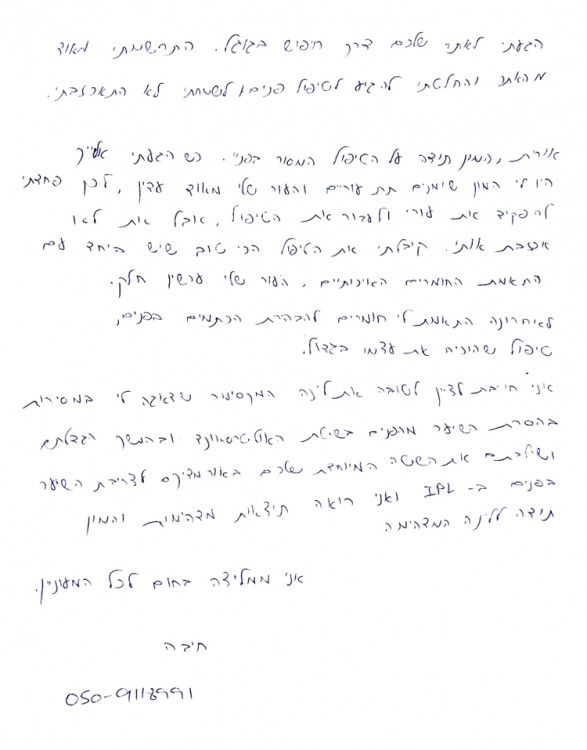 הגעתי לאתר שלכם דרך חיפוש בגוגל. התרשמתי מאוד
מהאתר והחלטתי להגיע לטיפול פנים ולשמחתי לא התאכזבתי.
אורית, המון תודה על הטיפול המסור בפניי. כשהגעתי אלייך
היו לי המון שומנים תת עוריים והעור שלי מאוד עדין, לכן פחדתי
להפקיד את עורי ולעבור את הטיפול, אבל את לא
אכזבת אותי. קיבלתי את הטיפול הכי טוב שיש ביחד עם
התאמת החומרים האיכותיים, העור שלי עכשיו חלק.
לאחרונה התאמת לי חומרים להבהרת הכתמים בפנים,
טיפול שהוכיח את עצמו בגדול.
אני חייבת לציין לטובה את לינה המקסימה שדאגה לי במסירות
בהסרת השיער מהפנים בשיטת האולטרסאונד ובהמשך הגדלתם
ושילבתם את השיטה המיוחדת שלכם באור מדיקס לצריבת השיער
בפנים ב- IPL ואני רואה תוצאות מדהימות והמון
תודה ללינה המדהימה
אני ממליצה בחום לכל המעוניין.
חיבה
050-9118991